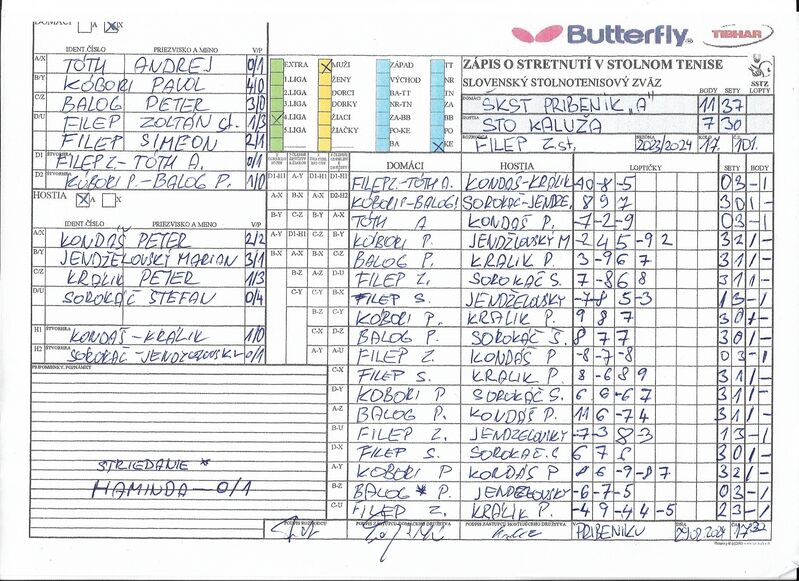 DOMÁCI A X
Butterfly TIBHAR
IDENT.ČÍSLO PRIEZVISKO A MENO V/P
A/X TÓTH ANDREJ 0/1
B/Y KÓBORI PAVOL 4/0
C/Z BALOG PETER 3/0
D/U FILEP ZOLTÁN st. 1/3
FILEP SIMEON 2/1
D1 FILEP Z.-TÓTH A. 0/1
D2 KÓBORI P.-BALOG P. 1/0
HOSTIA A X
IDENT.ČÍSLO PRIEZVISKO A MENO V/P
A/X KONDÁŠ PETER 2/2
B/Y JENDŽELOVSKÝ MARIAN 3/1
C/Z KRÁLIK PETER 1/3
D/U SOROKÁČ ŠTEFAN 0/4
H1 ŠTVORHRA KONDÁŠ-KRÁLIK 1/0
H2 ŠTVORHRA SOROKÁČ-JENDŽELOVSKÝ 0/1
PRIPOMIENKY, POZNÁMKY
STRIEDANIE *
HAMINDA-0/1
EXTRA MUŽI ZÁPAD TT
1.LIGA ŽENY VÝCHOD NR
2.LIGA DORCI BA-TT TN
3.LIGA DORKY NR-TN ZA
4.LIGA ŽIACI ZA-BB BB
5.LIGA ŽIAČKY PO-KE PO
BA KE
ZÁPIS O STRETNUTÍ V STOLNOM TENISE
SLOVENSKÝ STOLNOTENISOVÝ ZVÄZ SSTZ
BODY SETY LOPTY
DOMÁCI: ŠKST PRIBENÍK "A" 11 37
HOSTIA STO KALUŽA 7 30
ROZHODCA FILEP Z.st. SEZÓNA 2023/2024 KOLO 17. Č. 101.
DOMÁCI HOSTIA LOPTIČKY SETY BODY
FILEP Z.-TÓTH A. KONDÁŠ-KRÁLIK -10 -8 -5 03 -1
KÓBORI P.-BALOG P. SOROKÁČ-JENDŽE. 8 9 7 30 1-
TÓTH A KONDÁŠ P. -7 -2 -9 03 -1
KÓBORI P. JENDŽELOVSKÝ M -2 4 5 -9 2 32 1-
BALOG P. KRÁLIK P. 3 -9 6 7 31 1-
FILEP Z. SOROKÁČ S. 7 -8 6 8 31 1-
FILEP S. JENDŽELOVSKY -7 -8 5 -3 13 -1
KÓBORI P. KRÁLIK P. 9 8 7 30 1-
BALOG P. SOROKÁČ Š. 8 7 7 30 1-
FILEP Z. KONDÁŠ P -8 -7 -8 03 -1
C-X FILEP S. KRÁLIK P. 8 -6 8 9 31 1-
D-Y KÓBORI P SOROKÁČ S. 6 6 -6 7 31 1-
A-Z BALOG P. KONDÁŠ P. 11 6 -7 4 31 1-
B-U FILEP Z. JENDŽELOVSKY -7 -3 8 -3 13 -1
D-X FILEP S. SOROKÁČ Š 6 7 5 30 1-
A-Y KÓBORI P KONDÁŠ P 8 6 -9 -8 7 32 1-
B-Z BALOG * P. JENDŽELOVSKY -6 -7 -5 03 -1
C-U FILEP Z. KRÁLIK P. -4 9 -4 4 -5 23 -1
PODPIS ROZHODCU PODPIS ZÁSTUPCU DOMÁCEHO DRUŽSTVA PODPIS ZÁSTUPCU HOSŤUJÚCEHO DRUŽSTVA V PRIBENÍKU DŇA 29.02.2024